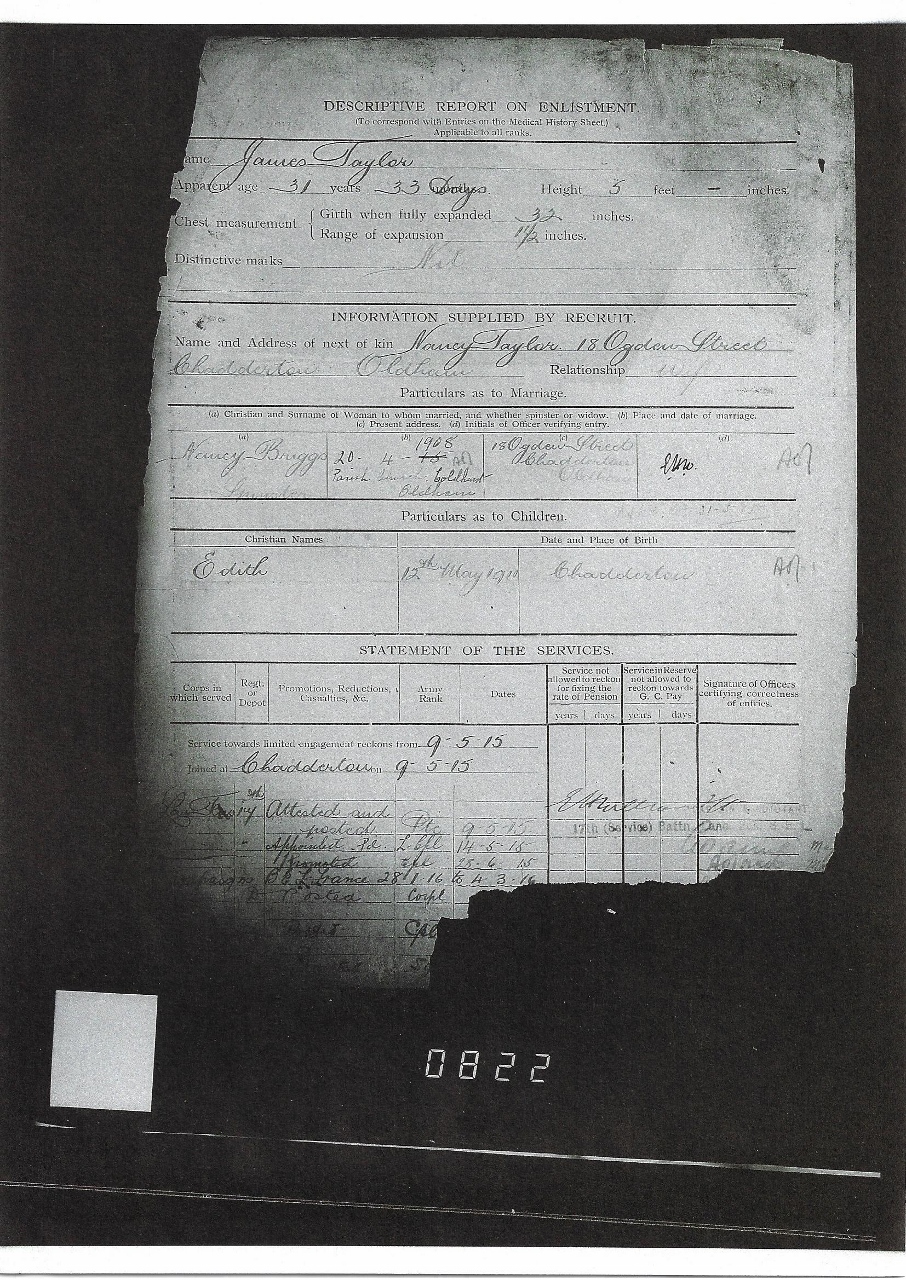 DESCRIPTIVE REPORT ON ENLISTMENT.
(To correspond with Entries on the Medical History Sheet.)
Applicable to all ranks.
ame James Taylor
Apparent age 31 years 33 Days Height 5 feet — inches.
Chest measurement { Girth when fully expanded 32 inches.
Range of expansion 1½ inches.
Distinctive marks Nil
INFORMATION SUPPLIED BY RECRUIT.
Name and Address of next of kin Nancy Taylor. 18 Ogden Street
Chadderton Oldham Relationship wife
Particulars as to Marriage.
(a) Christian and Surname of Woman to whom married, and whether spinster or widow. (b) Place and date of marriage.
(c) Present address. (d) Initials of Officer verifying entry.
(a) (b) (c) (d)
1908
Nancy Briggs 20 - 4 - 15 18 Ogden Street
Chadderton
Parish Church Coldhurst Oldham
Spinster Oldham
Particulars as to Children.
Christian Names Date and Place of Birth
Edith 12th May 1910 Chadderton
STATEMENT OF THE SERVICES.
Corps in which served Regt. or Depot Promotions, Reductions, Casualties, &c. Army Rank Dates Service not allowed to reckon for fixing the rate of Pension Service in Reserve not allowed to reckon towards G. C. Pay Signature of Officers certifying correctness of entries.
years days years days
Service towards limited engagement reckons from 9-5-15
Joined at Chadderton on 9-5-15
Attested and
posted Pte 9-5-15 17th (Service) Battn.
" Appointed Pd. L Cpl 14-5-15
Promoted Cpl 25-6-15
28/1 16 to 4-3-16
Posted Corpl
0822